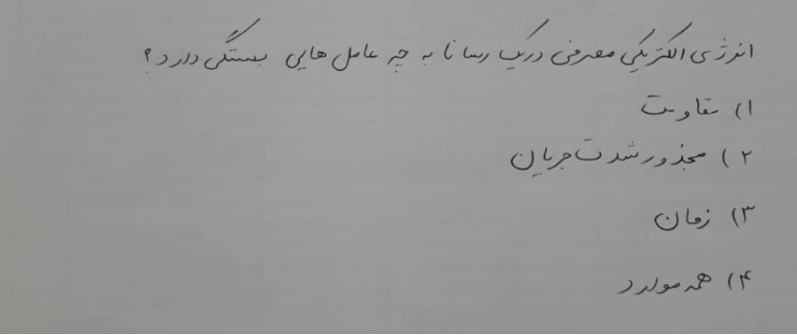 انرژی الکتریکی مصرفی در یک رسانا به چه عامل هایی بستگی دارد؟
۱) مقاومت
۲) مجذور شدت جریان
۳) زمان
۴) همه موارد